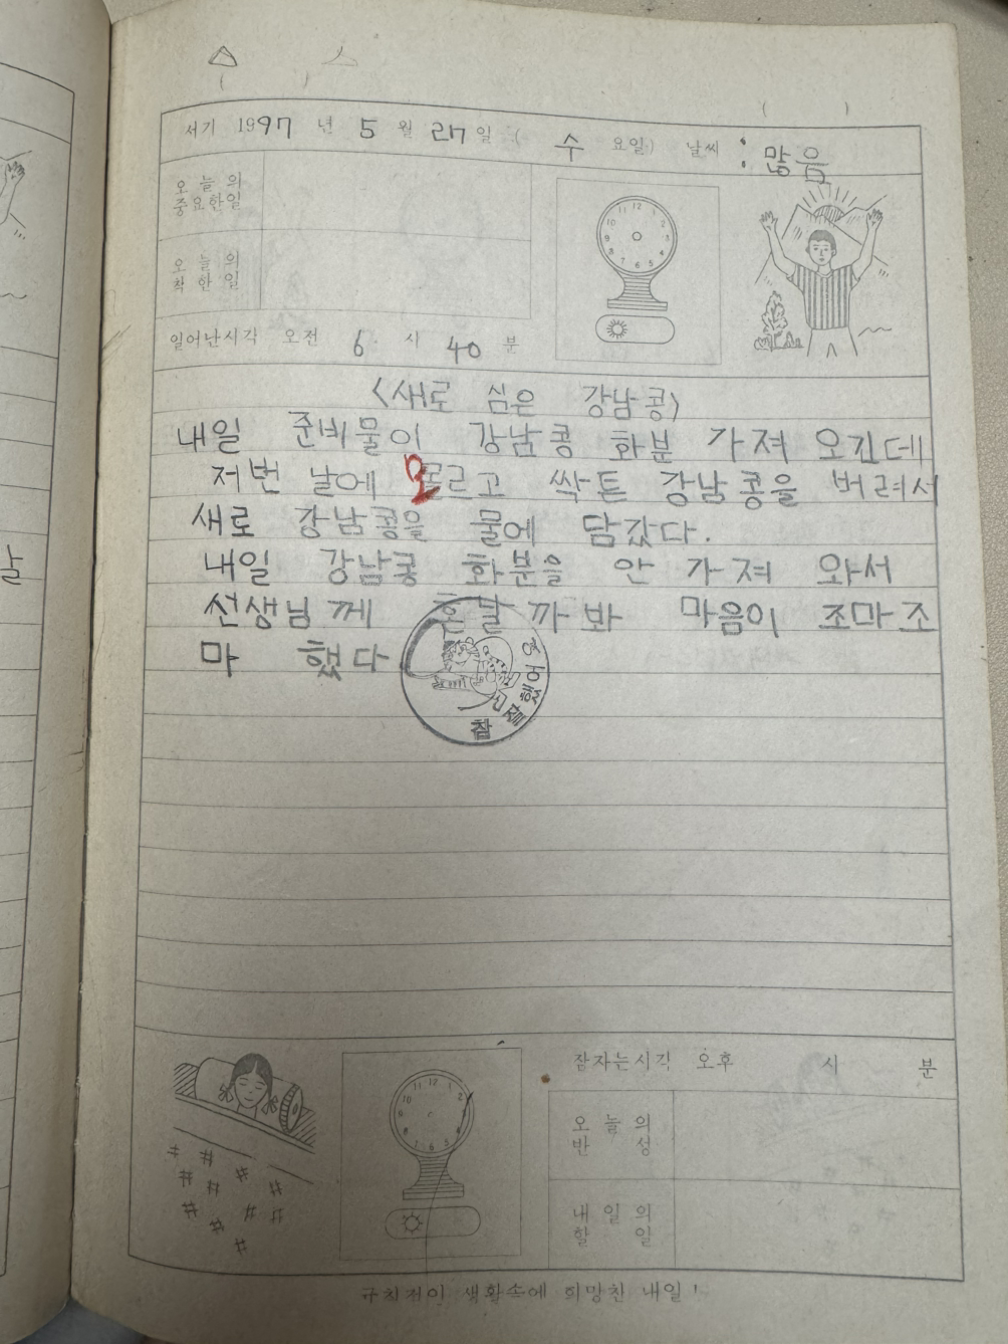 서기 1997 년 5 월 27 일 ( 수 요일) 날씨 : 맑음
오늘의
중요한일
오늘의
착한일
일어난시각 오전 6 시 40 분
<새로 심은 강남콩>
내일 준비물이 강남콩 화분 가져 오긴데
저번 날에 모르고 싹튼 강남콩을 버려서
새로 강남콩을 물에 담갔다.
내일 강남콩 화분을 안 가져 와서
선생님께 혼날까봐 마음이 조마조
마 했다
참 잘했어요
잠자는시각 오후 시 분
오늘의
반성
내일의
할일
규칙적인 생활속에 희망찬 내일!